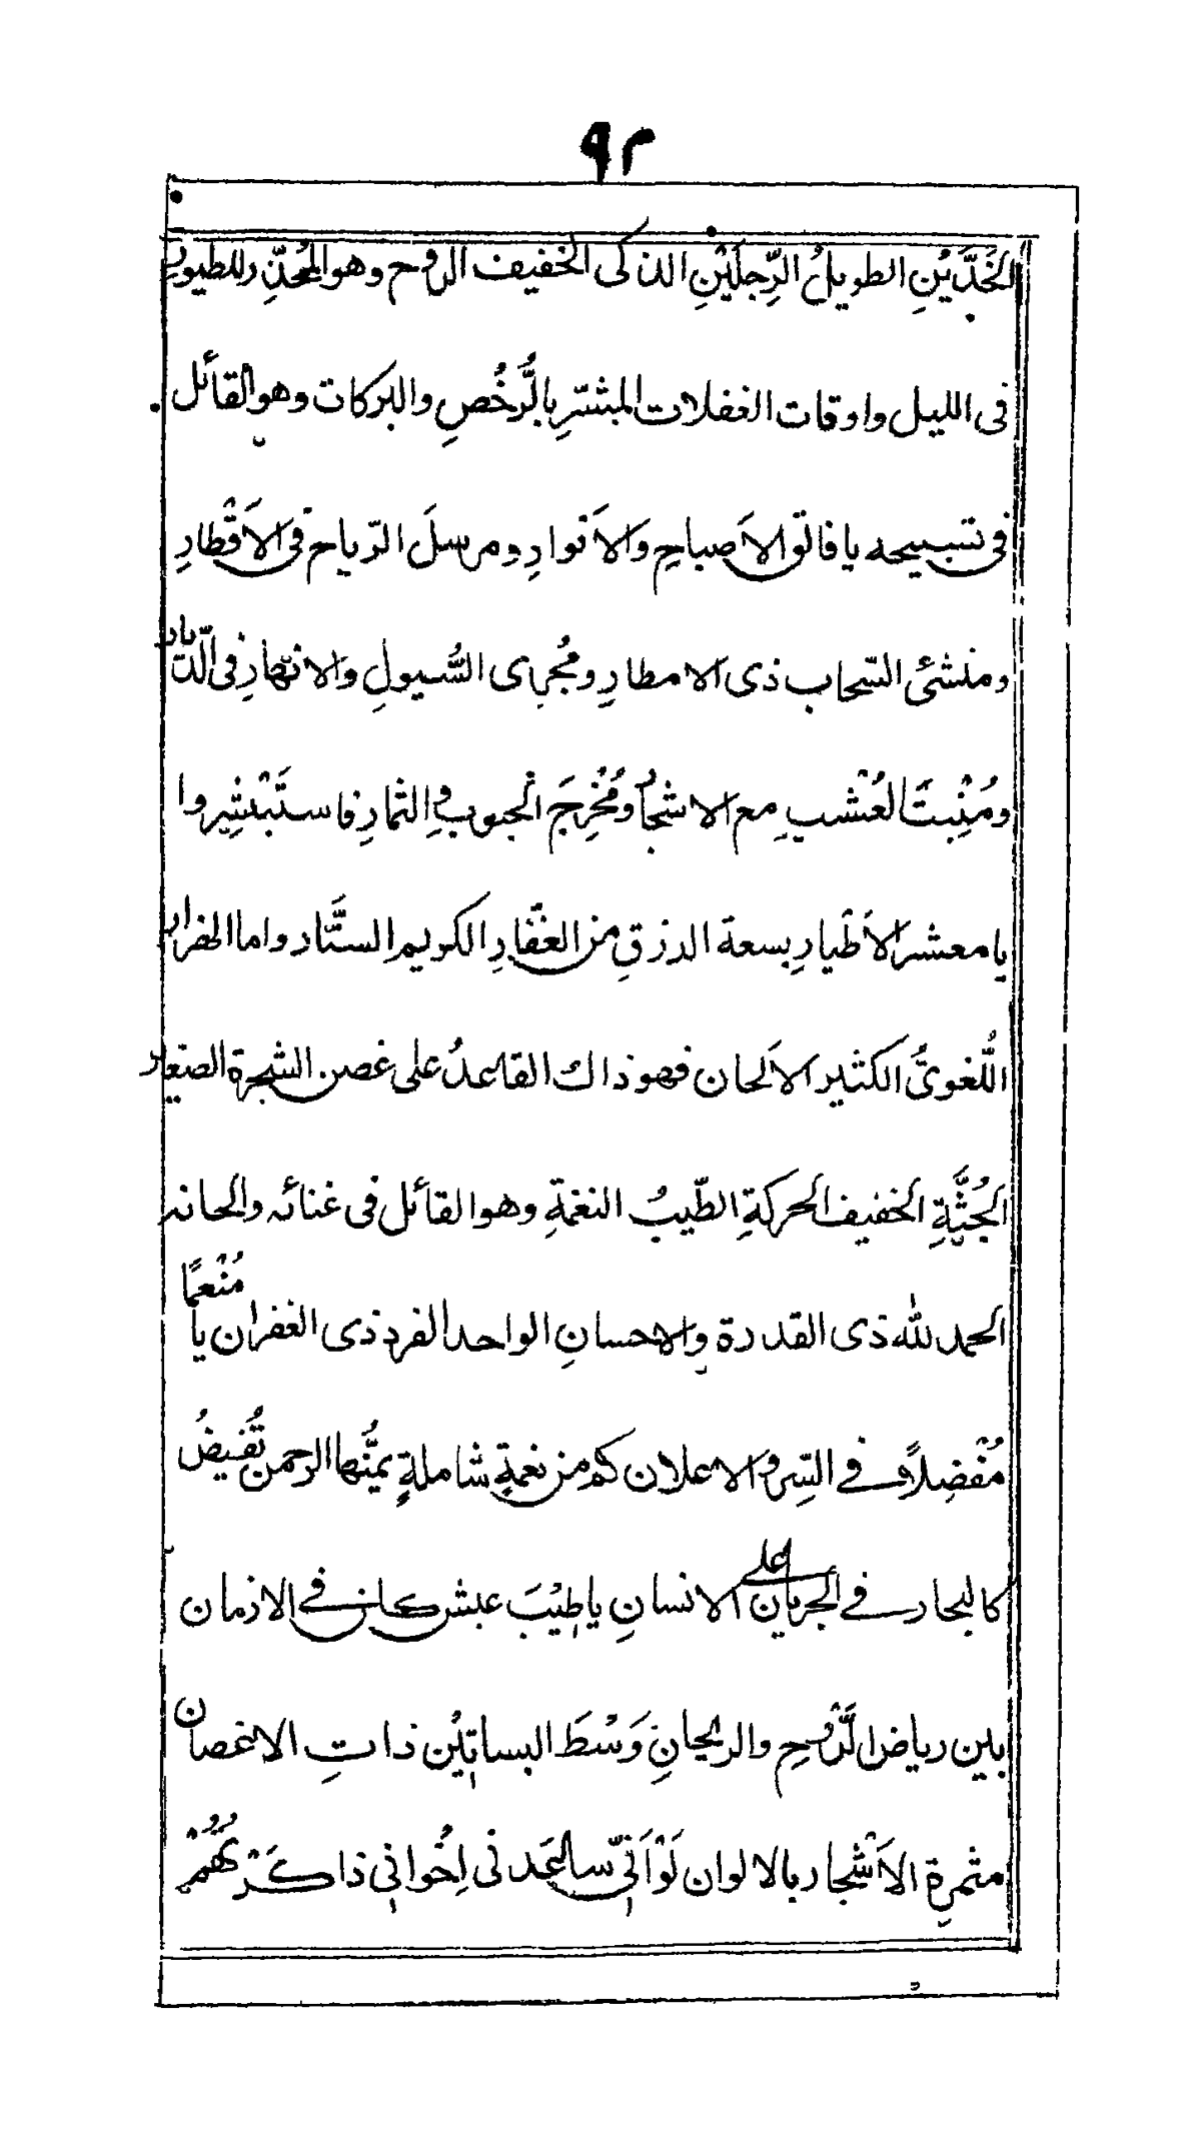 ٩٣
الخَدَّيْنِ الطويلُ الرِّجلَيْنِ الذكى الخفيف الروح وهو المُحذِّر للطيور
فى الليل واوقات الغفلات المبشّرِ بالرُّخُصِ والبركات وهو القائل
فى تسبيحه يا فالق الاَصباحِ والاَنوارِ ومرسلَ الرّياح فى الاَقْطارِ
ومنشئ السّحاب ذى الامطارِ ومُجرى السُّيولِ والانهارِ فى الدّيار
ومُنْبِتَ العُشْبِ مع الاشجار ومُخْرِجَ الحبوب والثمارِ فاستَبْشِروا
يا معشر الاَطْيارِ بسعة الرزقِ من الغفّارِ الكريم الستَّار واما الهزار
اللُّغوىُّ الكثير الاَلحان فهو ذاك القاعدُ على غصن الشجرة الصغير
الجُثَّةِ الخفيف الحركةِ الطّيبُ النغمةِ وهو القائل فى غنائه والحانه
الحمد لله ذى القدرة والاحسانِ الواحد الفرد ذى الغفران يا مُنْعمًا
مُفْضِلاً فى السِّر والاعلان كم من نعمةٍ شاملةٍ يمنُّها الرحمن تُفيضُ
كالبحار فى الجريان على الانسانِ يا طِيْبَ عيش كان فى الازمان
بين رياض الرَّوْحِ والريحانِ وَسْطَ البساتِيْن ذاتِ الاغصان
مثمرةِ الاَشْجار بالالوان لَوْ اَنّى ساعَدنى اِخْوانى ذاكَرْتهُمْ